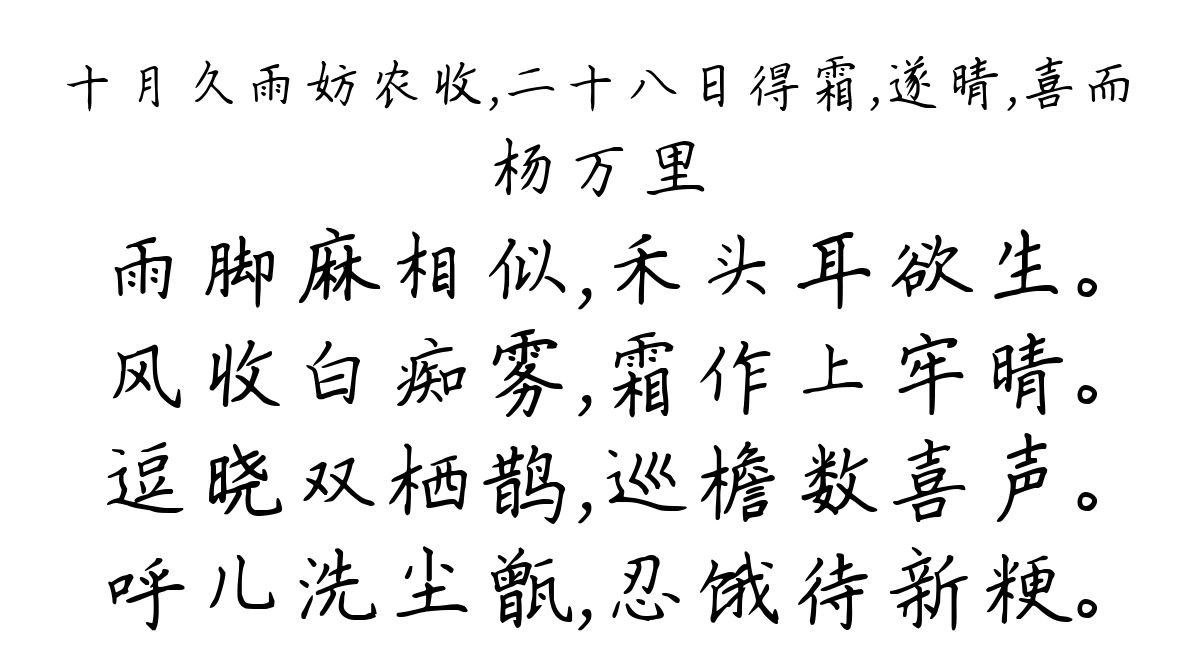 十月久雨妨农收,二十八日得霜,遂晴,喜而
杨万里
雨脚麻相似,禾头耳欲生。
风收白痴雾,霜作上牢晴。
逗晓双栖鹊,巡檐数喜声。
呼儿洗尘甑,忍饿待新粳。